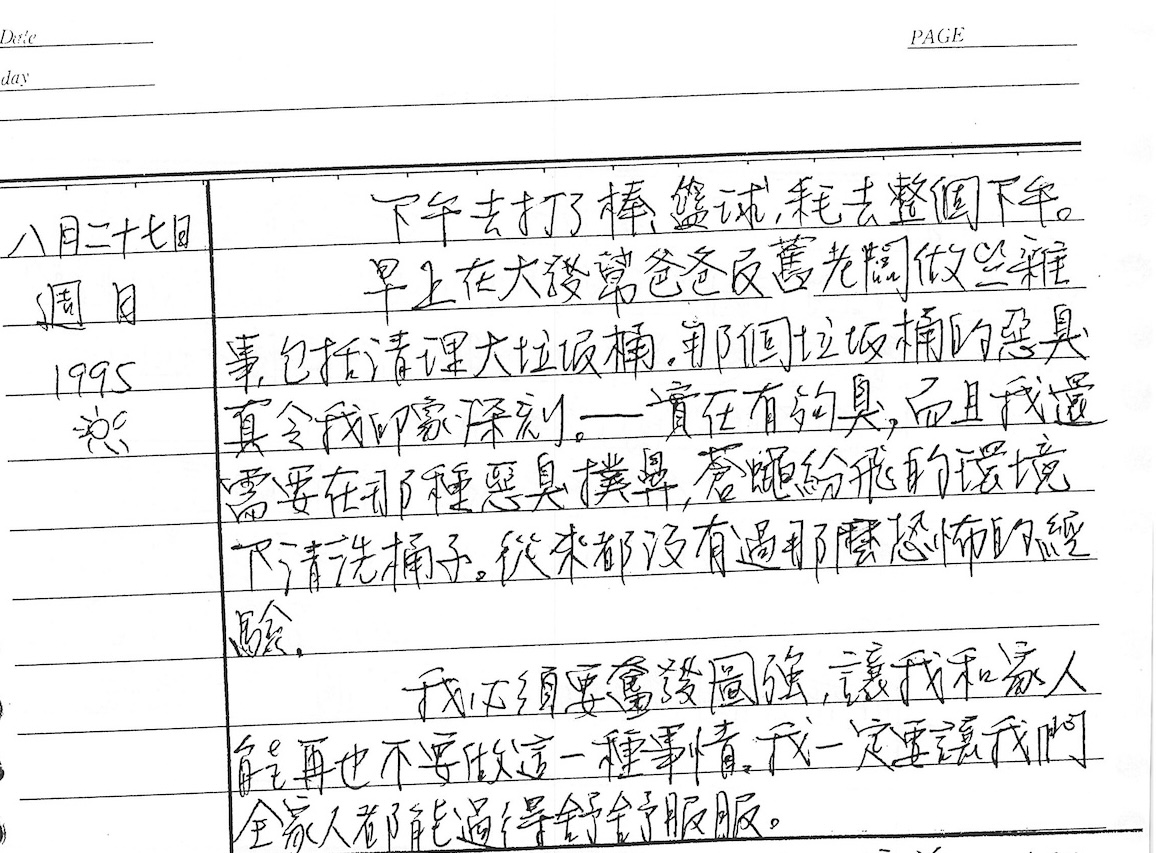 Date
PAGE
day
八月二十七日
週日
1995
下午去打了棒、籃球,耗去整個下午。
早上在大發幫爸爸及舊老闆做些雜
事,包括清理大垃圾桶。那個垃圾桶的惡臭
真令我印象深刻。——實在有夠臭,而且我還
需要在那種惡臭撲鼻,蒼蠅紛飛的環境
下清洗桶子。從來都沒有過那麼恐怖的經
驗。
我必須要奮發圖強,讓我和家人
能再也不要做這一種事情。我一定要讓我們
全家人都能過得舒舒服服。